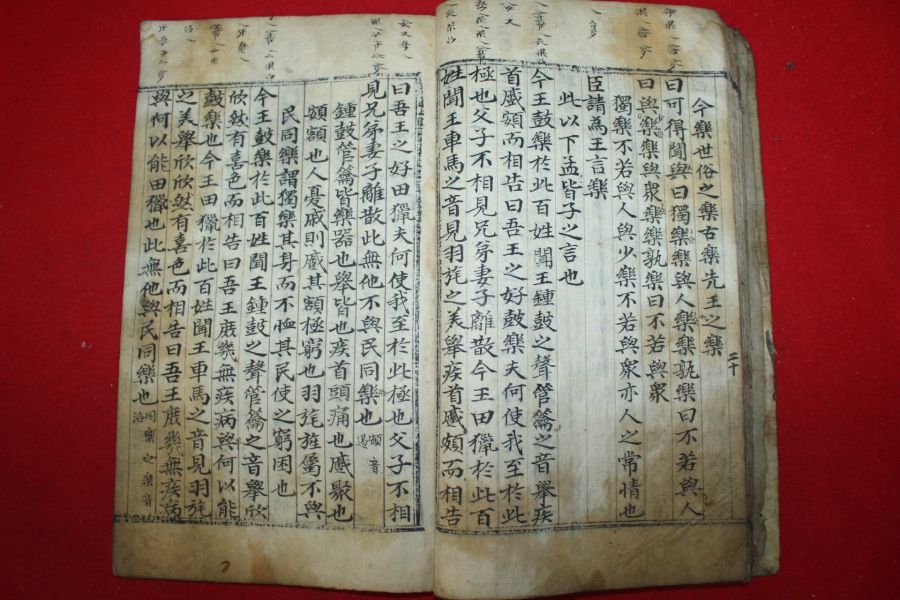 二十
今樂世俗之樂古樂先王之樂
曰可得聞與曰獨樂樂與人樂樂孰樂曰不若與人
曰與少樂樂與衆樂樂孰樂曰不若與衆
獨樂不若與人與少樂不若與衆亦人之常情也
臣請為王言樂
此以下孟皆子之言也
今王鼓樂於此百姓聞王鍾鼓之聲管籥之音舉疾
首蹙頞而相告曰吾王之好鼓樂夫何使我至於此
極也父子不相見兄弟妻子離散今王田獵於此百
姓聞王車馬之音見羽旄之美舉疾首蹙頞而相告
曰吾王之好田獵夫何使我至於此極也父子不相
見兄弟妻子離散此無他不與民同樂也頞音遏
鍾鼓管籥皆樂器也舉皆也疾首頭痛也蹙聚也
頞額也人憂戚則蹙其額極窮也羽旄旌屬不與
民同樂謂獨樂其身而不恤其民使之窮困也
今王鼓樂於此百姓聞王鍾鼓之聲管籥之音舉欣
欣然有喜色而相告曰吾王庶幾無疾病與何以能
鼓樂也今王田獵於此百姓聞王車馬之音見羽旄
之美舉欣欣然有喜色而相告曰吾王庶幾無疾病
與何以能田獵也此無他與民同樂也同樂之樂音洛